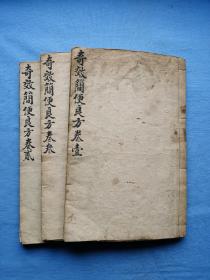 奇效簡便良方卷壹
奇效簡便良方卷叁
奇效簡便良方卷貳